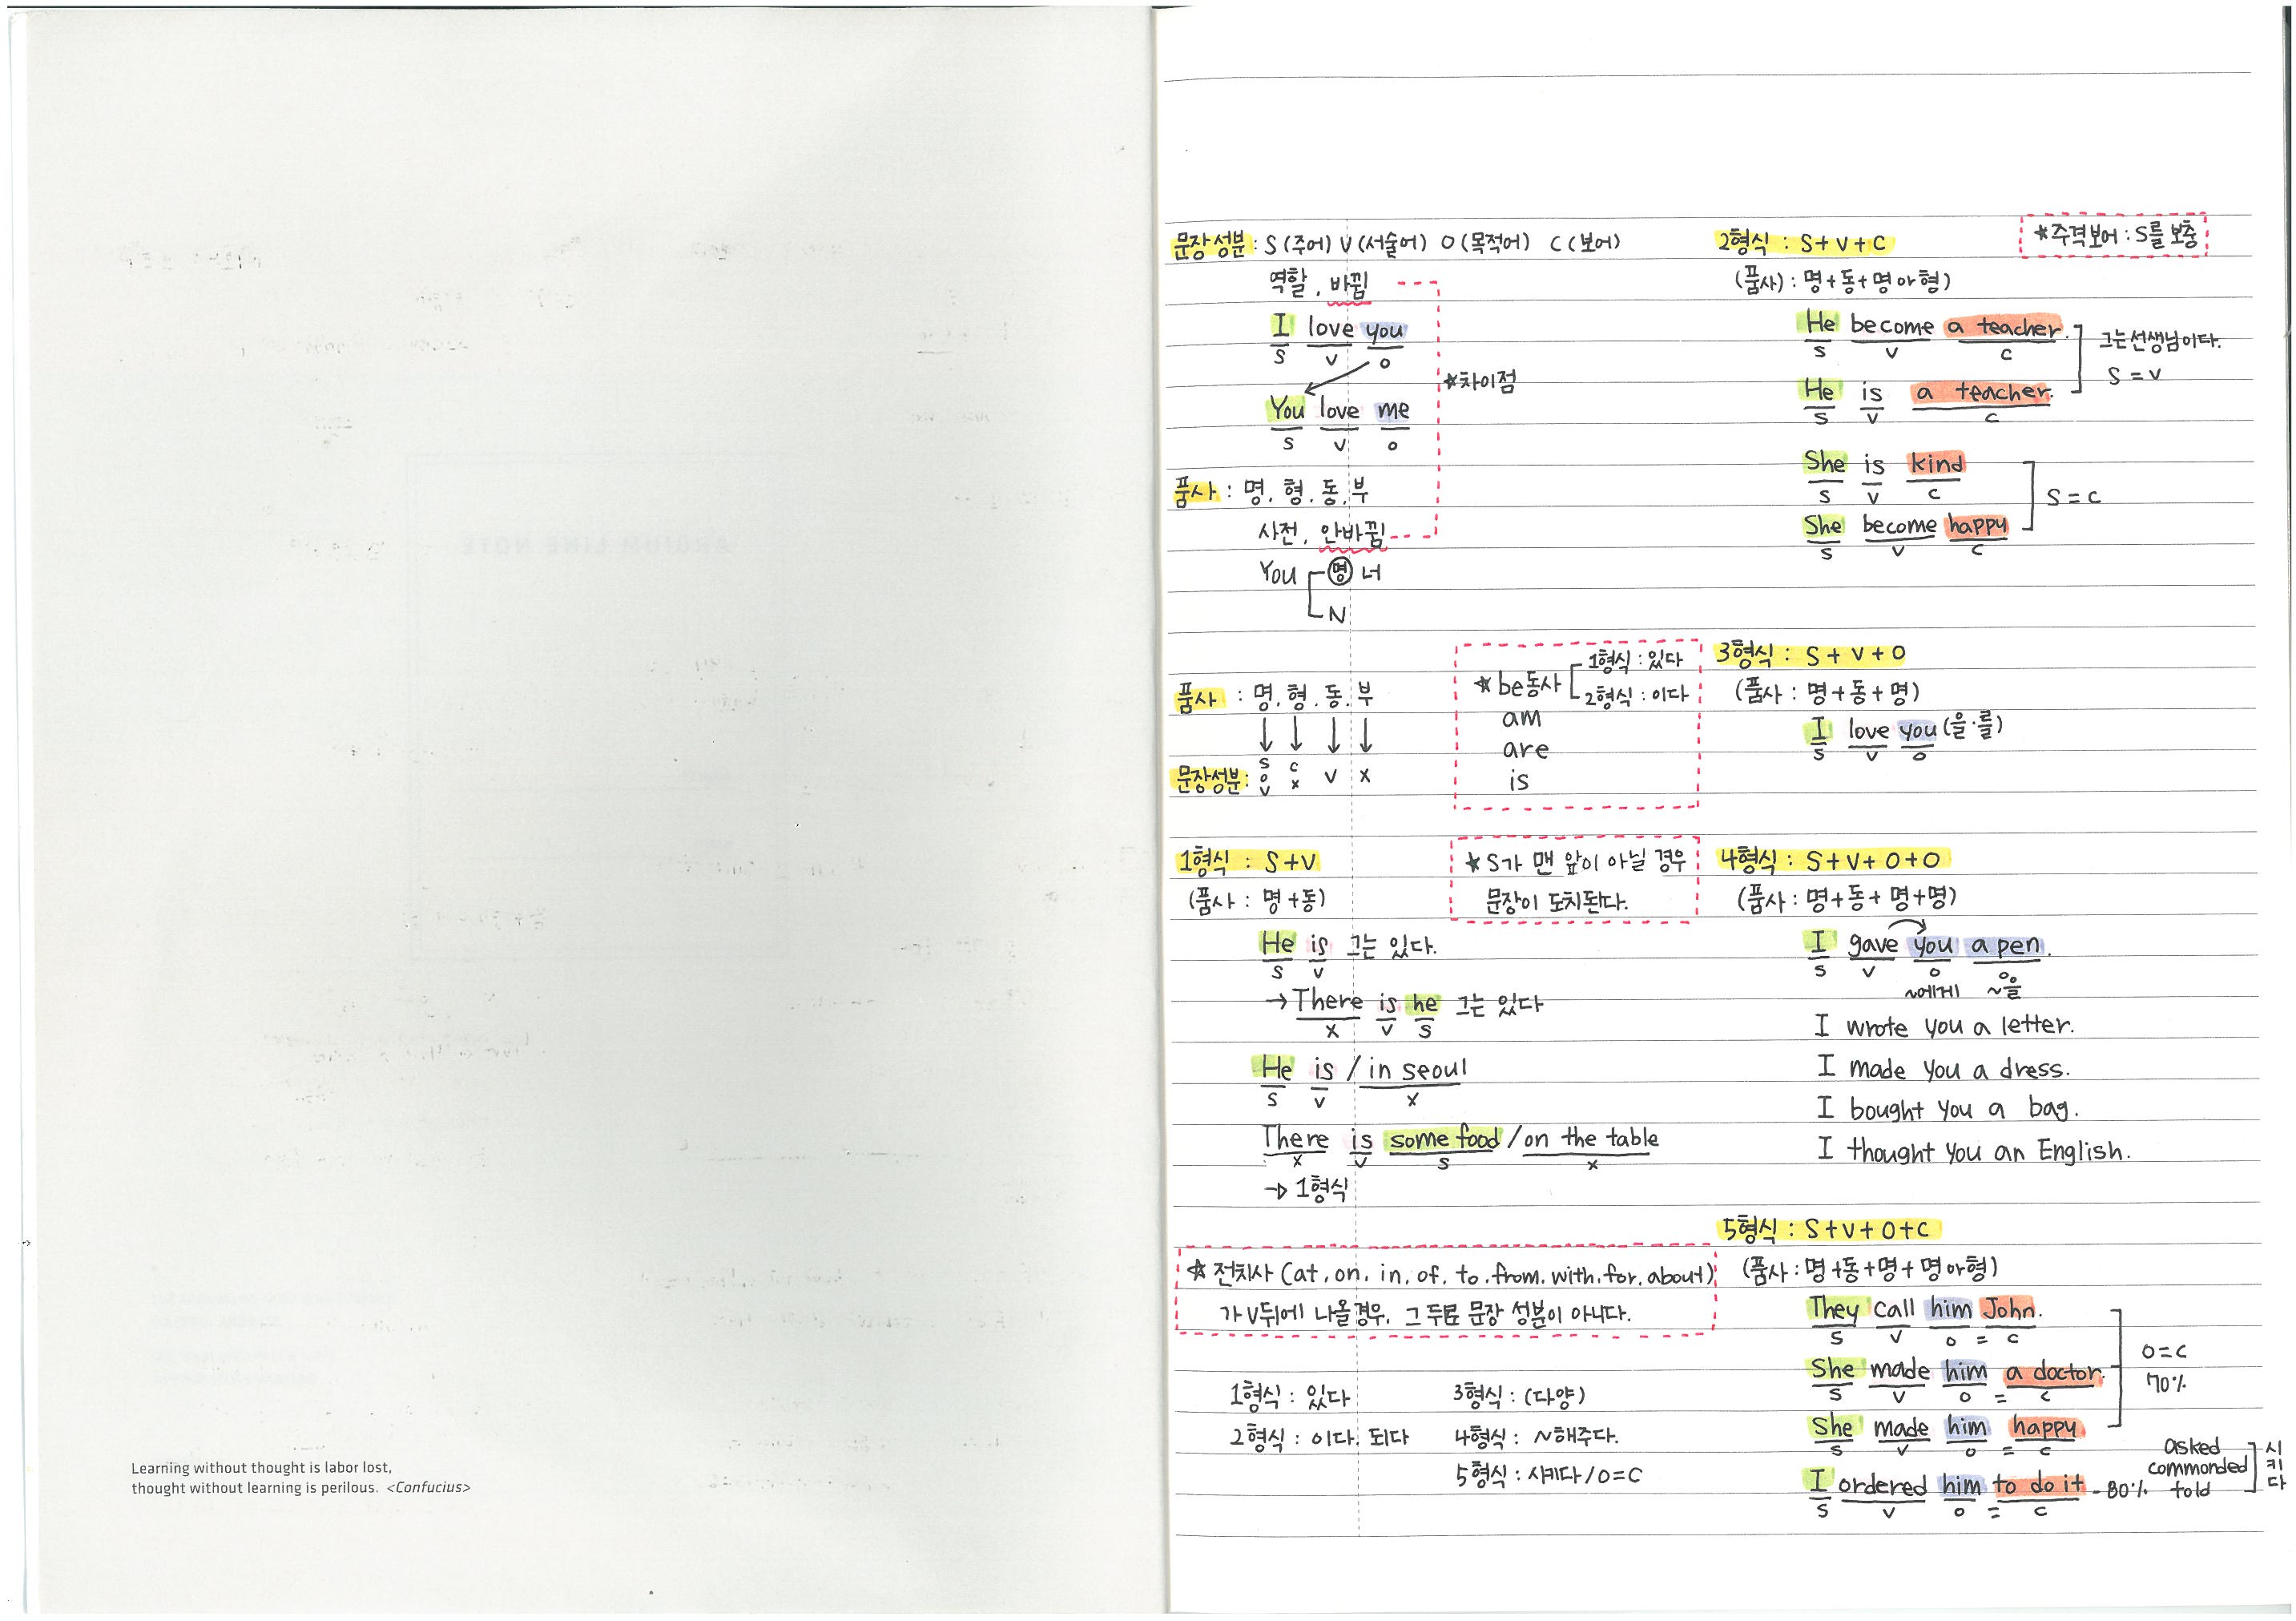 Learning without thought is labor lost,
thought without learning is perilous. <Confucius>
문장성분 : S (주어) V (서술어) O (목적어) C (보어)
역할, 바뀜
I love you
S V O
★차이점
You love me
S V O
품사 : 명. 형. 동. 부
사전, 안바뀜
You 명 너
N
품사 : 명. 형. 동. 부
↓ ↓ ↓ ↓
S C
문장성분 : O X V X
V
★be동사 1형식 : 있다
2형식 : 이다
am
are
is
1형식 : S+V
(품사 : 명+동)
★S가 맨 앞이 아닐 경우
문장이 도치된다.
He is 그는 있다.
S V
→There is he 그는 있다
X V S
He is / in seoul
S V X
There is some food / on the table
X V S X
→ 1형식
★ 전치사 (at. on. in. of. to. from. with. for. about)
가 V뒤에 나올경우, 그 두로 문장 성분이 아니다.
1형식 : 있다
2형식 : 이다. 되다
3형식 : (다양)
4형식 : ~해주다.
5형식 : 시키다 / O=C
2형식 : S+V+C
★주격보어 : S를 보충
(품사) : 명+동+명 or 형)
He become a teacher.
S V C
그는선생님이다.
S = V
He is a teacher.
S V C
She is kind
S V C
S = C
She become happy
S V C
3형식 : S+V+O
(품사 : 명+동+명)
I love you (을·를)
S V O
4형식 : S+V+O+O
(품사 : 명+동+명+명)
I gave you a pen.
S V O O
~에게 ~을
I wrote you a letter.
I made you a dress.
I bought you a bag.
I thought you an English.
5형식 : S+V+O+C
(품사 : 명+동+명+명 or 형)
They call him John.
S V O = C
O=C
70%
She made him a doctor.
S V O = C
She made him happy
S V O = C
I ordered him to do it - 80%
S V O = C
asked
commonded
told
시키다